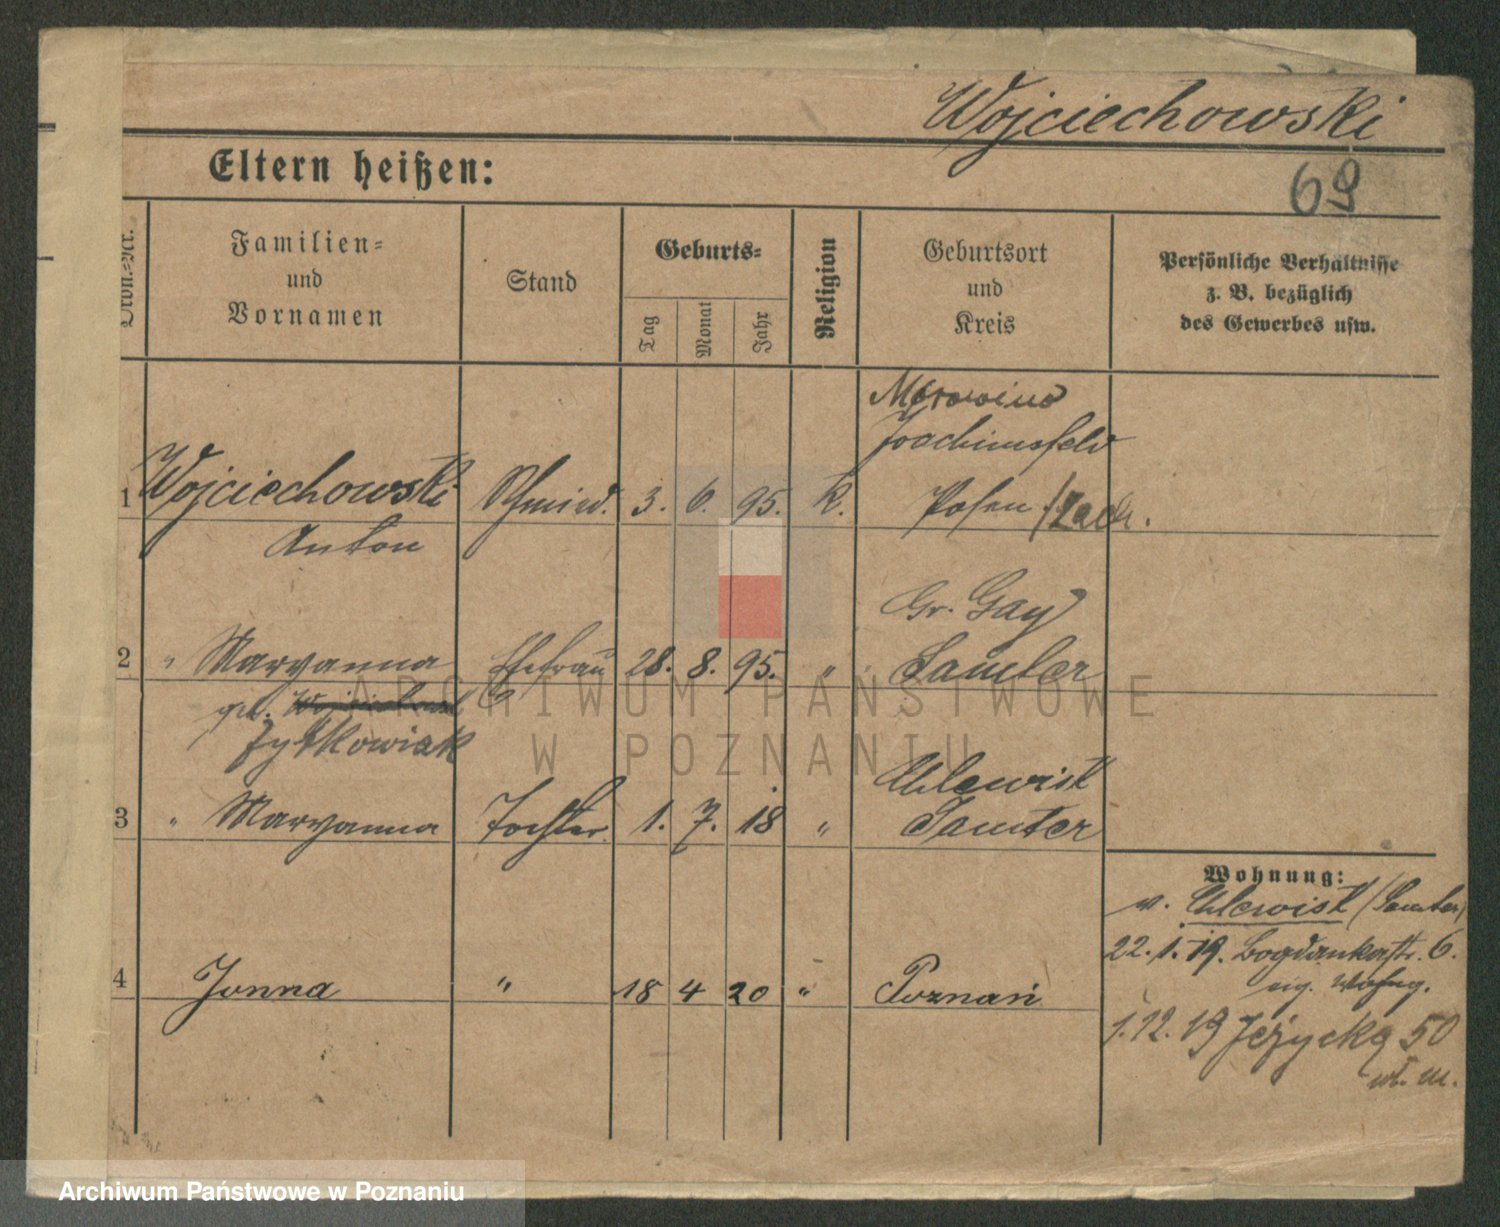 Wojciechowski
Eltern heißen:
69
Ordn.-Nr.
Familien=
und
Vornamen
Stand
Geburts=
Tag
Monat
Jahr
Religion
Geburtsort
und
Kreis
Persönliche Verhältnisse
z. B. bezüglich
des Gewerbes usw.
Joachimsfeld
1 Wojciechowski Schmied. 3. 6. 95. k. Posen
Anton
Gr. Gay
2 " Maryanna Ehefrau 28. 8. 95. " Samter
geb.
Zytkowiak
Chlewisk
3 " Maryanna Tochter. 1. 7. 18 " Samter
4 Janna " 18 4 20 " Poznań
Wohnung:
v. Chlewisk (Samter)
22. 1. 19. Bogdankastr. 6.
eig. Wohng.
1. 12. 19 Jeżycka 50
wł. m.
ARCHIWUM PAŃSTWOWE
W POZNANIU
Archiwum Państwowe w Poznaniu